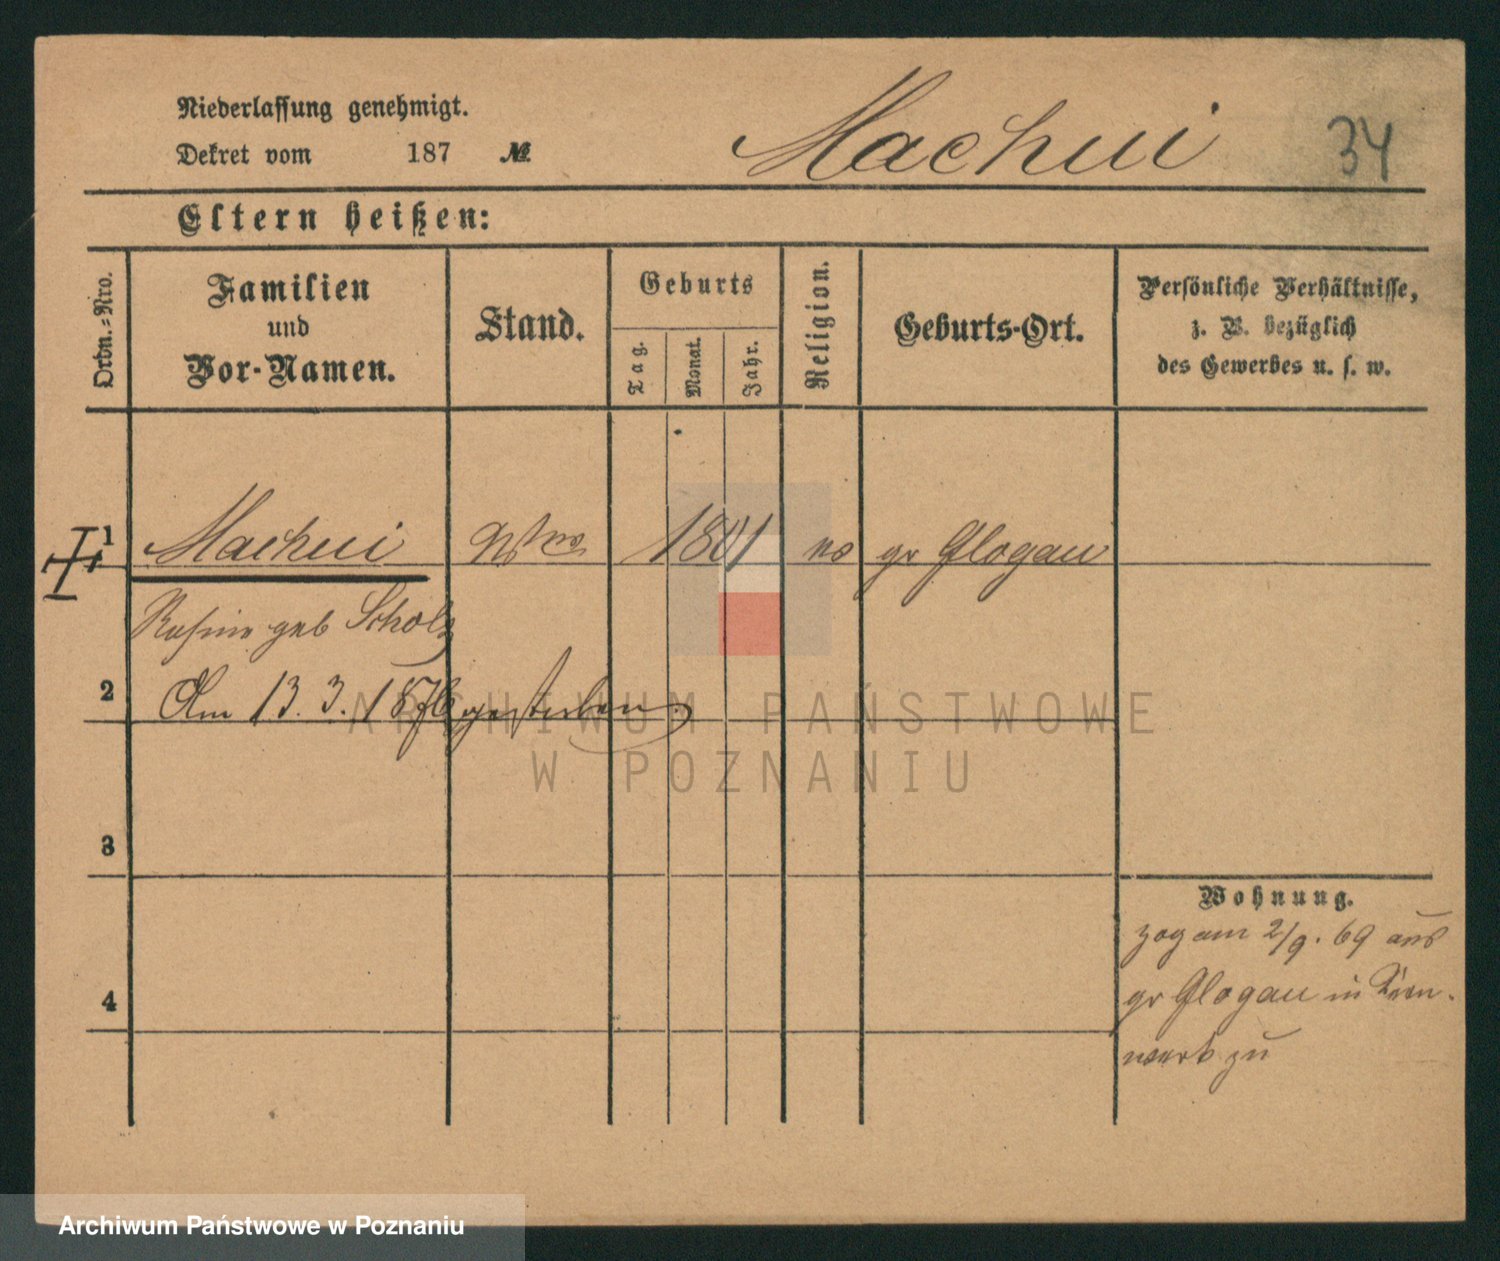 Niederlassung genehmigt.
Dekret vom 187 №
Machui
34
Eltern heißen:
Ordn.-Nro.
Familien
und
Vor-Namen.
Stand.
Geburts
Tag.
Monat.
Jahr.
Religion.
Geburts-Ort.
Persönliche Verhältnisse,
z. B. bezüglich
des Gewerbes u. s. w.
1
Machui
Wwe
1801
ev
gr Glogau
Rosine geb Scholz
2
Am 13.3.1876 gestorben
3
Wohnung.
zog am 2/9. 69 aus
gr Glogau in
4
zu
ARCHIWUM PAŃSTWOWE
W POZNANIU
Archiwum Państwowe w Poznaniu